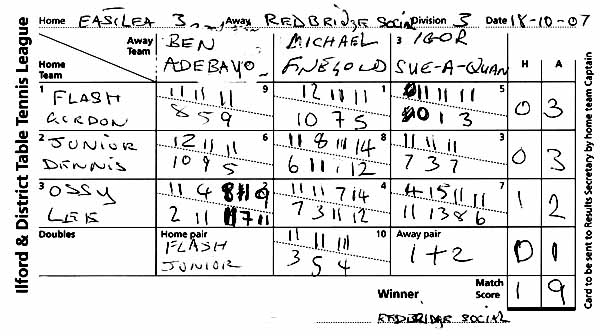 Ilford & District Table Tennis League
Home EASTLEA 3 Away REDBRIDGE SOCIAL Division 3 Date 18-10-07
Away Team BEN ADEBAYO MICHAEL FINEGOLD 3 IGOR SUE-A-QUAN H A
Home Team
1 FLASH GORDON 11 11 11 9 12 11 11 1 11 11 11 5 0 3
8 5 9 10 7 5 0 1 3
2 JUNIOR DENNIS 12 11 11 6 11 8 11 14 8 11 11 11 3 0 3
10 9 5 6 11 12 7 3 7
3 OSSY 11 4 11 11 7 14 4 4 15 11 11 7 1 2
2 11 7 11 7 3 11 12 11 13 8 6
Doubles Home pair 11 11 11 10 Away pair 0 1
FLASH JUNIOR 3 5 4 1+2
Winner Match Score 1 9
REDBRIDGE SOCIAL
Card to be sent to Results Secretary by home team Captain